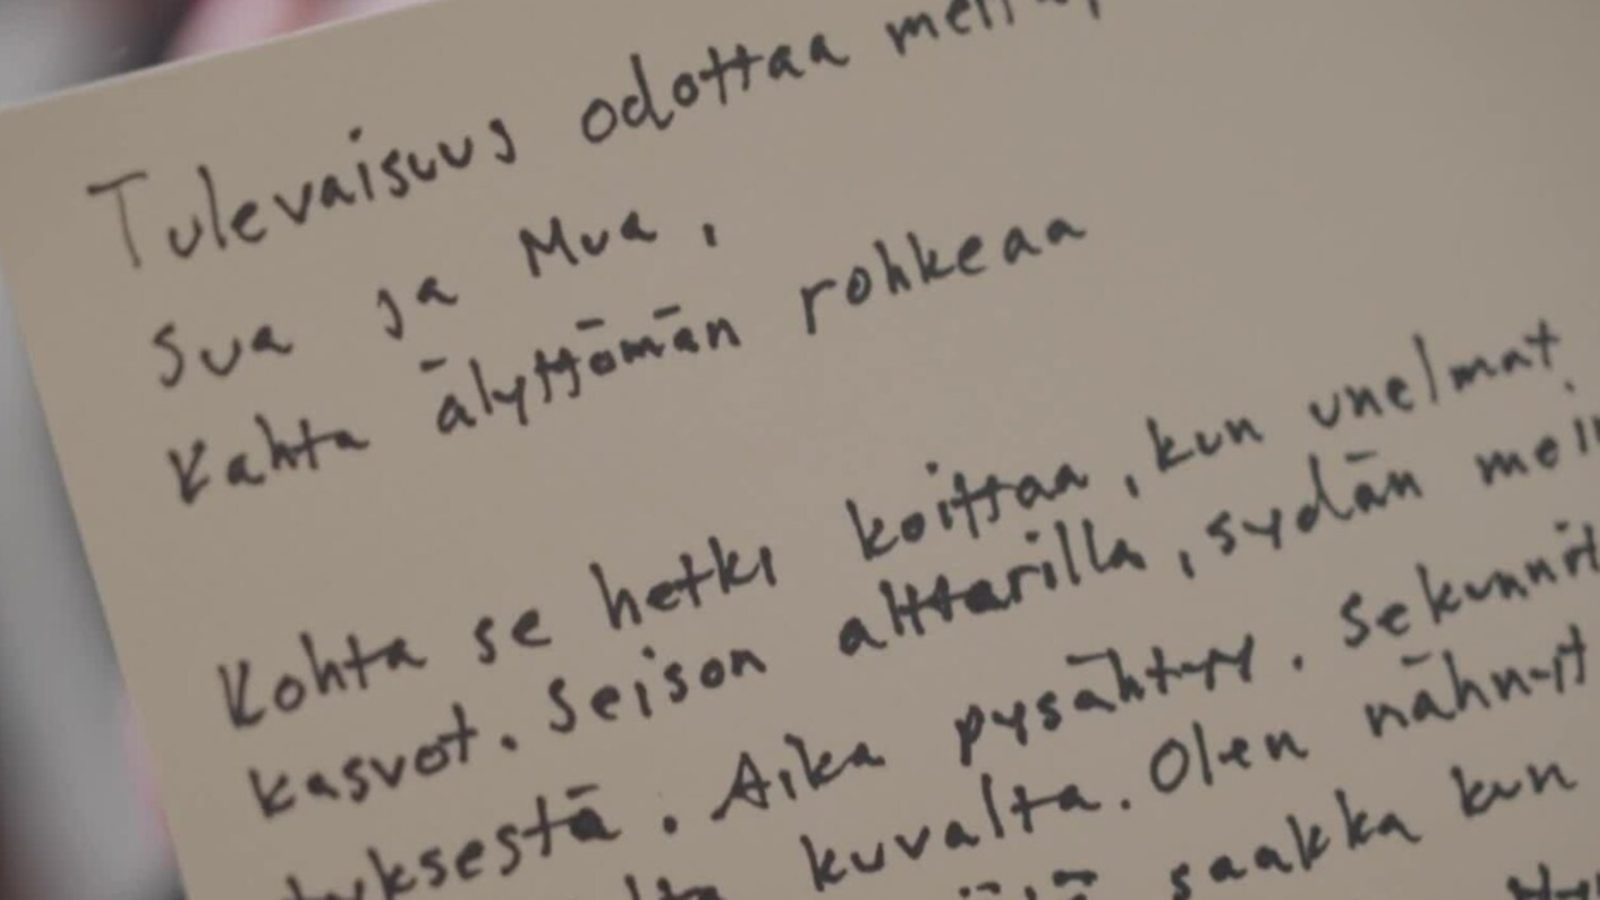 Tulevaisuus odottaa
sua ja Mua,
Kahta älyttömän rohkeaa
Kohta se hetki koittaa, kun unelmat
kasvot. Seison alttarilla, sydän
Aika pysähtyy. Sekunnit
kuvalta. Olen nähnyt
saakka kun